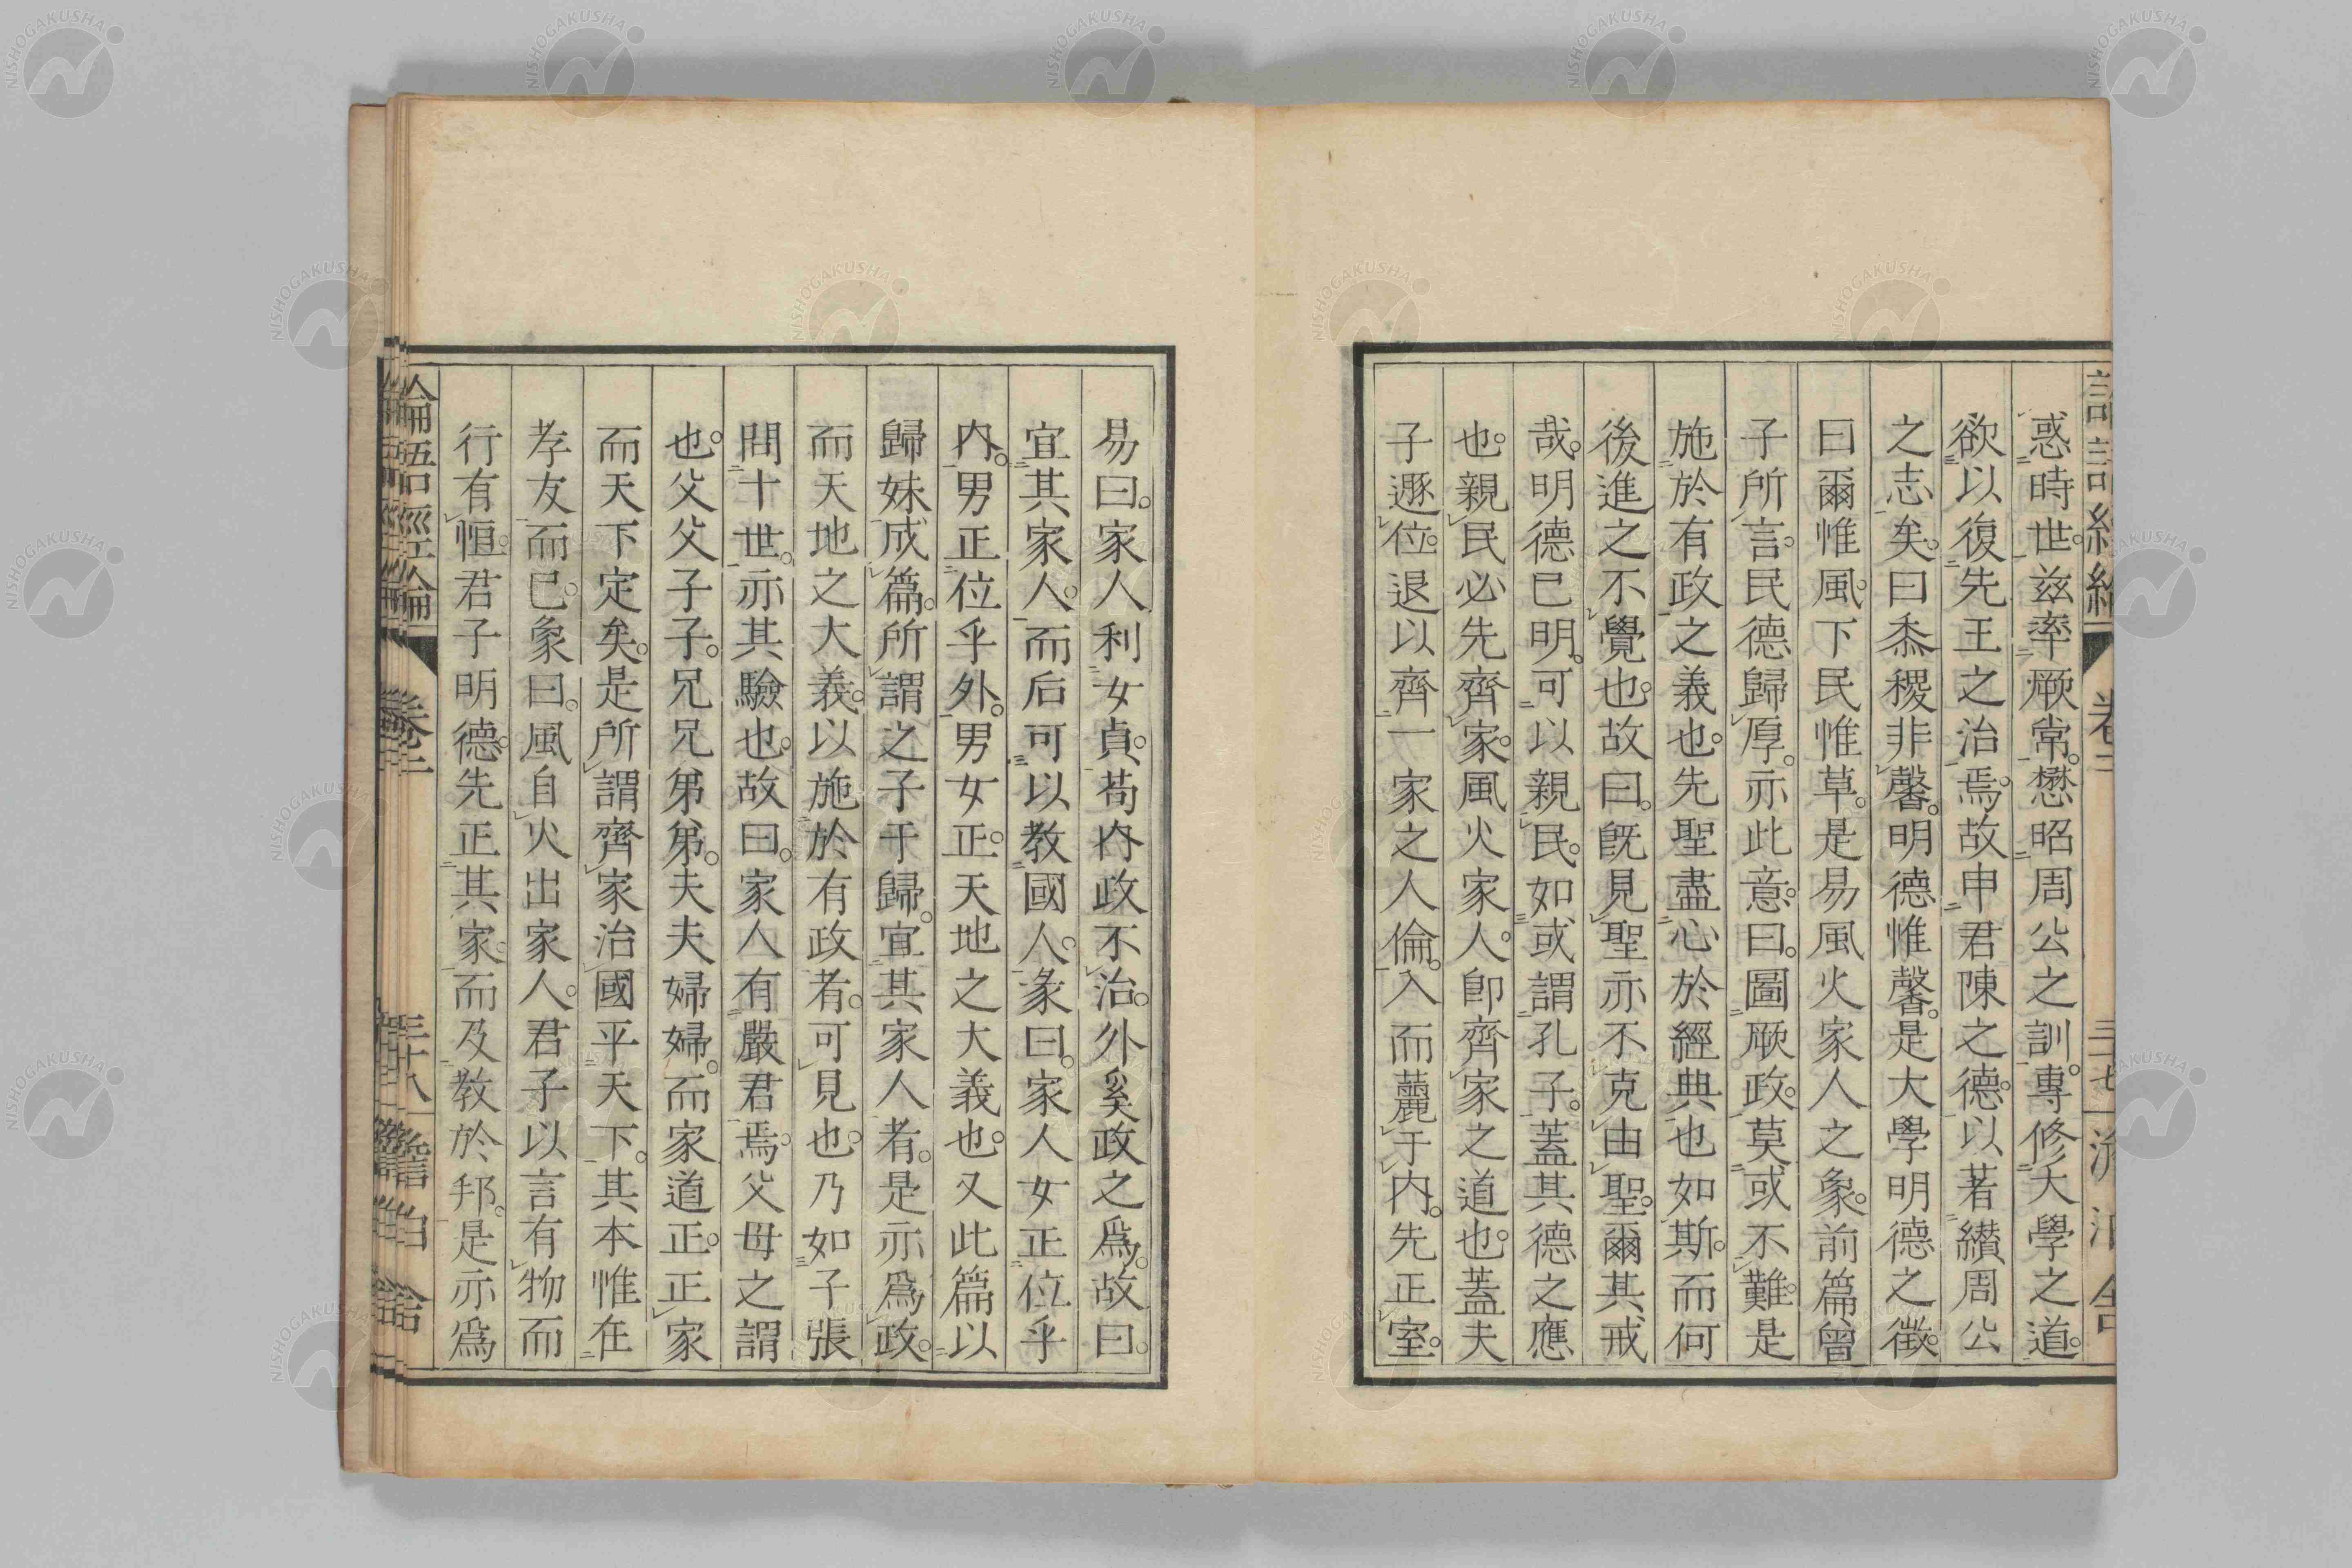 惑時世。茲率厥常。懋昭周公之訓。專修大學之道。
欲以復先王之治焉。故申君陳之德。以著纉周公
之志矣。曰黍稷非馨。明德惟馨。是大學明德之徵。
曰爾惟風。下民惟草。是易風火家人之象。前篇曾
子所言。民德歸厚。亦此意。曰。圖厥政。莫或不難。是
施於有政之義也。先聖盡心於經典也如斯。而何
後進之不覺也。故曰。既見聖亦不克由聖。爾其戒
哉。明德已明。可以親民。如或謂孔子。蓋其德之應
也。親民必先齊家。風火家人。卽齊家之道也。蓋夫
子遯位。退以齊一家之人倫。入而麗于内。先正室。
易曰。家人利女貞。苟内政不治。外奚政之爲。故曰。
宜其家人。而后可以教國人。彖曰。家人女正位乎
内。男正位乎外。男女正。天地之大義也。又此篇以
歸妹成篇。所謂之子于歸。宜其家人者。是亦爲政。
而天地之大義。以施於有政者。可見也。乃如子張
問十世。亦其驗也。故曰。家人有嚴君焉。父母之謂
也。父父子子。兄兄弟弟。夫夫婦婦。而家道正。正家
而天下定矣。是所謂齊家治國平天下。其本惟在
孝友而已。象曰。風自火出家人。君子以言有物而
行有恒。君子明德。先正其家。而及教於邦。是亦爲
論語經論 卷二 三十八